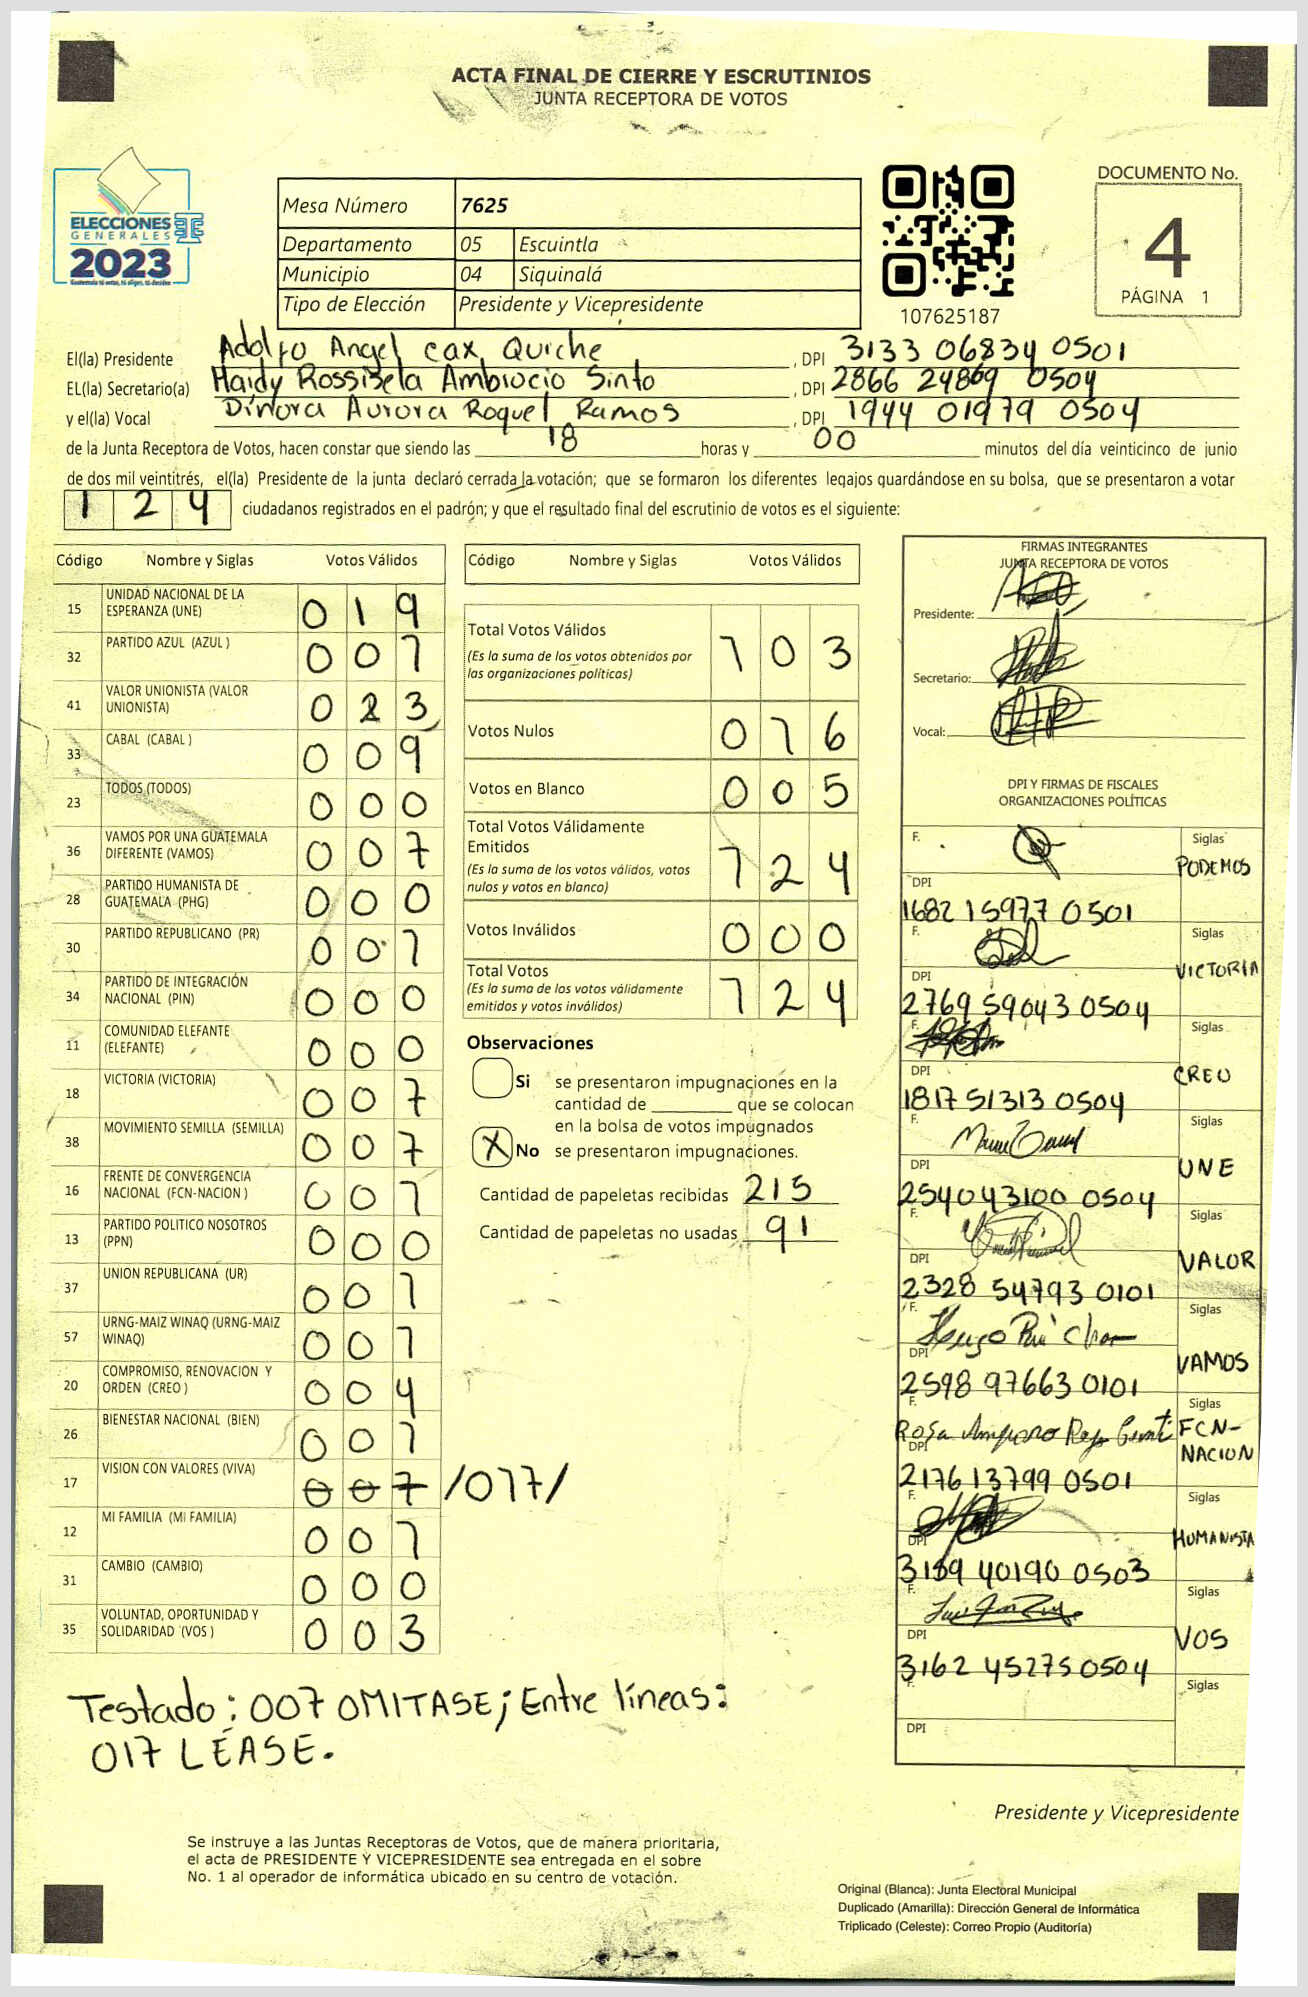 ACTA FINAL DE CIERRE Y ESCRUTINIOS
JUNTA RECEPTORA DE VOTOS
ELECCIONES
GENERALES
2023
Mesa Número 7625
Departamento 05 Escuintla
Municipio 04 Siquinalá
Tipo de Elección Presidente y Vicepresidente
107625187
DOCUMENTO No.
4
PÁGINA 1
El(la) Presidente Adolfo Angel cax Quiche, DPI 3133 06834 0501
EL(la) Secretario(a) Haidy Rossibela Ambrocio Sinto, DPI 2866 24869 0504
y el(la) Vocal Dinora Aurora Roquel Ramos, DPI 1944 01979 0504
de la Junta Receptora de Votos, hacen constar que siendo las 18 horas y 00 minutos del día veinticinco de junio
de dos mil veintitrés, el(la) Presidente de la junta declaró cerrada la votación; que se formaron los diferentes legajos guardándose en su bolsa, que se presentaron a votar
1 2 4 ciudadanos registrados en el padrón; y que el resultado final del escrutinio de votos es el siguiente:
Código Nombre y Siglas Votos Válidos
15 UNIDAD NACIONAL DE LA
ESPERANZA (UNE) 0 1 9
32 PARTIDO AZUL (AZUL ) 0 0 1
41 VALOR UNIONISTA (VALOR
UNIONISTA) 0 2 3
33 CABAL (CABAL ) 0 0 9
23 TODOS (TODOS) 0 0 0
36 VAMOS POR UNA GUATEMALA
DIFERENTE (VAMOS) 0 0 7
28 PARTIDO HUMANISTA DE
GUATEMALA (PHG) 0 0 0
30 PARTIDO REPUBLICANO (PR) 0 0 1
34 PARTIDO DE INTEGRACIÓN
NACIONAL (PIN) 0 0 0
11 COMUNIDAD ELEFANTE
(ELEFANTE) 0 0 0
18 VICTORIA (VICTORIA) 0 0 7
38 MOVIMIENTO SEMILLA (SEMILLA) 0 0 7
16 FRENTE DE CONVERGENCIA
NACIONAL (FCN-NACION ) 0 0 1
13 PARTIDO POLITICO NOSOTROS
(PPN) 0 0 0
37 UNION REPUBLICANA (UR) 0 0 1
57 URNG-MAIZ WINAQ (URNG-MAIZ
WINAQ) 0 0 1
20 COMPROMISO, RENOVACION Y
ORDEN (CREO ) 0 0 4
26 BIENESTAR NACIONAL (BIEN) 0 0 1
17 VISION CON VALORES (VIVA) 0 0 7 /017/
12 MI FAMILIA (MI FAMILIA) 0 0 1
31 CAMBIO (CAMBIO) 0 0 0
35 VOLUNTAD, OPORTUNIDAD Y
SOLIDARIDAD (VOS ) 0 0 3
Testado: 007 OMITASE; Entre líneas:
017 LÉASE.
Código Nombre y Siglas Votos Válidos
Total Votos Válidos 1 0 3
(Es la suma de los votos obtenidos por
las organizaciones políticas)
Votos Nulos 0 1 6
Votos en Blanco 0 0 5
Total Votos Válidamente
Emitidos 1 2 4
(Es la suma de los votos válidos, votos
nulos y votos en blanco)
Votos Inválidos 0 0 0
Total Votos 1 2 4
(Es la suma de los votos válidamente
emitidos y votos inválidos)
Observaciones
Si se presentaron impugnaciones en la
cantidad de ________ que se colocan
en la bolsa de votos impugnados
X No se presentaron impugnaciones.
Cantidad de papeletas recibidas 215
Cantidad de papeletas no usadas 91
FIRMAS INTEGRANTES
JUNTA RECEPTORA DE VOTOS
Presidente:
Secretario:
Vocal:
DPI Y FIRMAS DE FISCALES
ORGANIZACIONES POLÍTICAS
F. Siglas
PODEMOS
DPI
1682 15977 0501
F. Siglas
VICTORIA
DPI
2769 59043 0504
F. Siglas
CREO
DPI
1817 51313 0504
F. Siglas
UNE
DPI
2540 43100 0504
F. Siglas
VALOR
DPI
2328 54793 0101
F. Siglas
VAMOS
DPI
2598 97663 0101
F. Siglas
Rosa Amparo FCN-
NACION
DPI
2176 13799 0501
F. Siglas
HUMANISTA
DPI
3159 40190 0503
F. Siglas
VOS
DPI
3162 45275 0504
F. Siglas
DPI
Presidente y Vicepresidente
Se instruye a las Juntas Receptoras de Votos, que de manera prioritaria,
el acta de PRESIDENTE Y VICEPRESIDENTE sea entregada en el sobre
No. 1 al operador de informática ubicado en su centro de votación.
Original (Blanca): Junta Electoral Municipal
Duplicado (Amarilla): Dirección General de Informática
Triplicado (Celeste): Correo Propio (Auditoría)